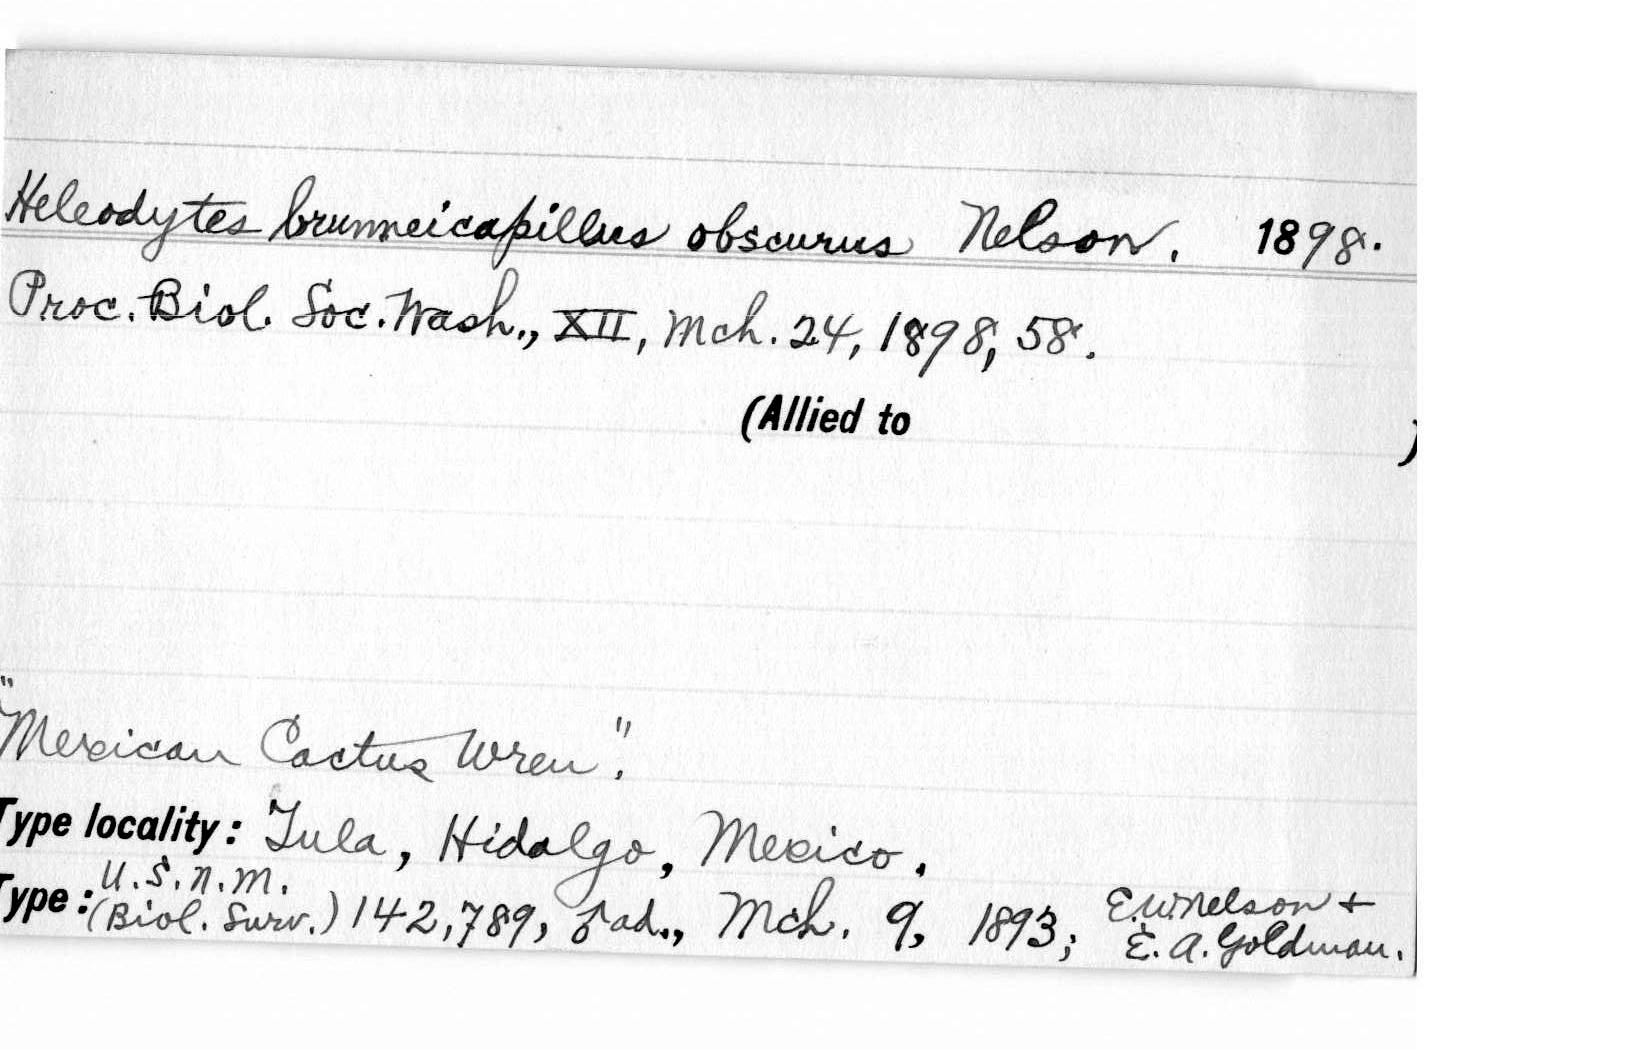 Heleodytes brunneicapillus obscurus Nelson. 1898.
Proc. Biol. Soc. Wash., XII, Mch. 24, 1898, 58.
(Allied to )
"Mexican Cactus Wren".
Type locality: Tula, Hidalgo, Mexico.
U.S.N.M.
Type: (Biol. Surv.) 142,789, ad., Mch. 9, 1893; E.W. Nelson +
E. A. Goldman.